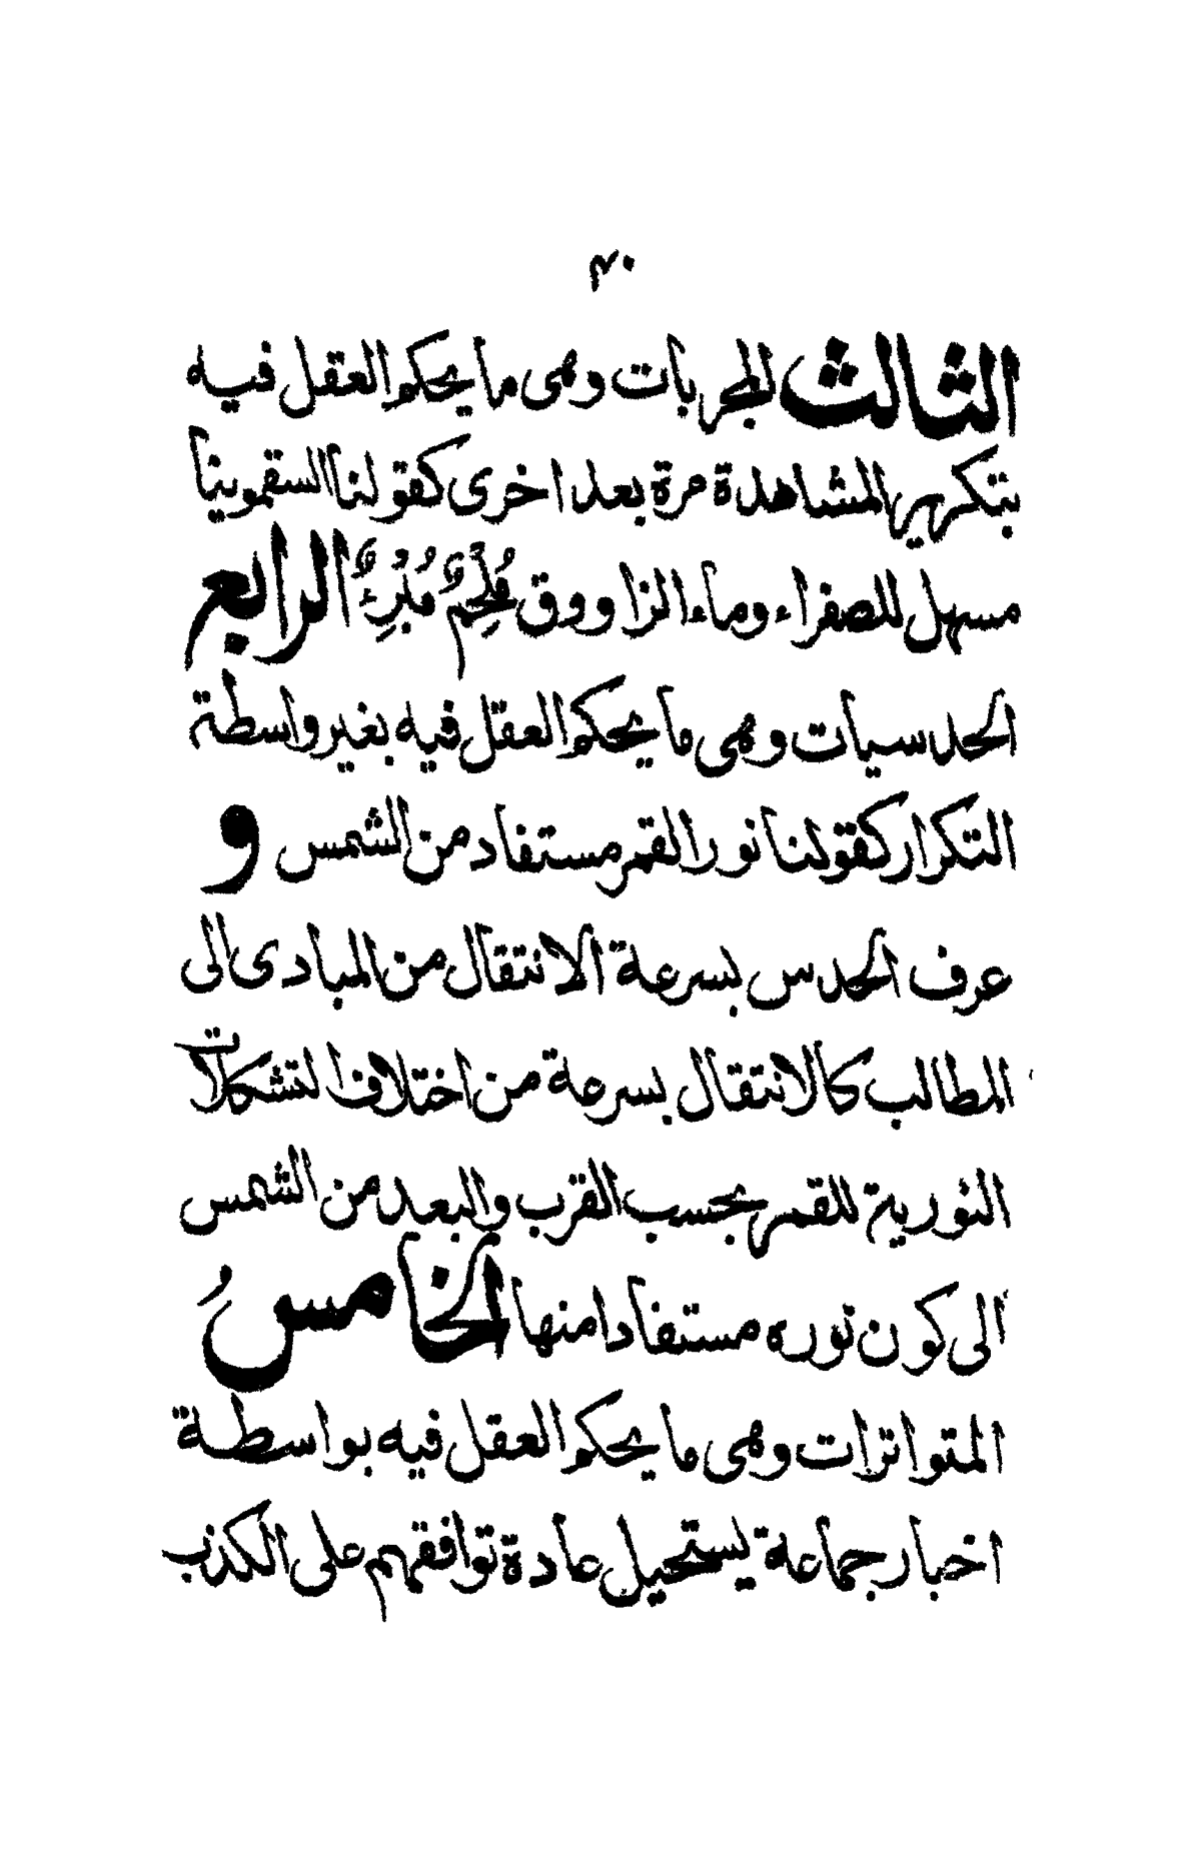 ٤٠
الثالث المجربات وهى ما يحكم العقل فيه
بتكرير المشاهدة مرة بعد اخرى كقولنا السقمونيا
مسهل للصفراء وماء الزاووق مُلحِمٌ مُبْرِءٌ الرابع
الحدسيات وهى ما يحكم العقل فيه بغير واسطة
التكرار كقولنا نور القمر مستفاد من الشمس و
عرف الحدس بسرعة الانتقال من المبادى الى
المطالب كالانتقال بسرعة من اختلاف التشكلات
النورية للقمر بحسب القرب والبعد من الشمس
الى كون نوره مستفادا منها الخامسُ
المتواترات وهى ما يحكم العقل فيه بواسطة
اخبار جماعة يستحيل عادة توافقهم على الكذب